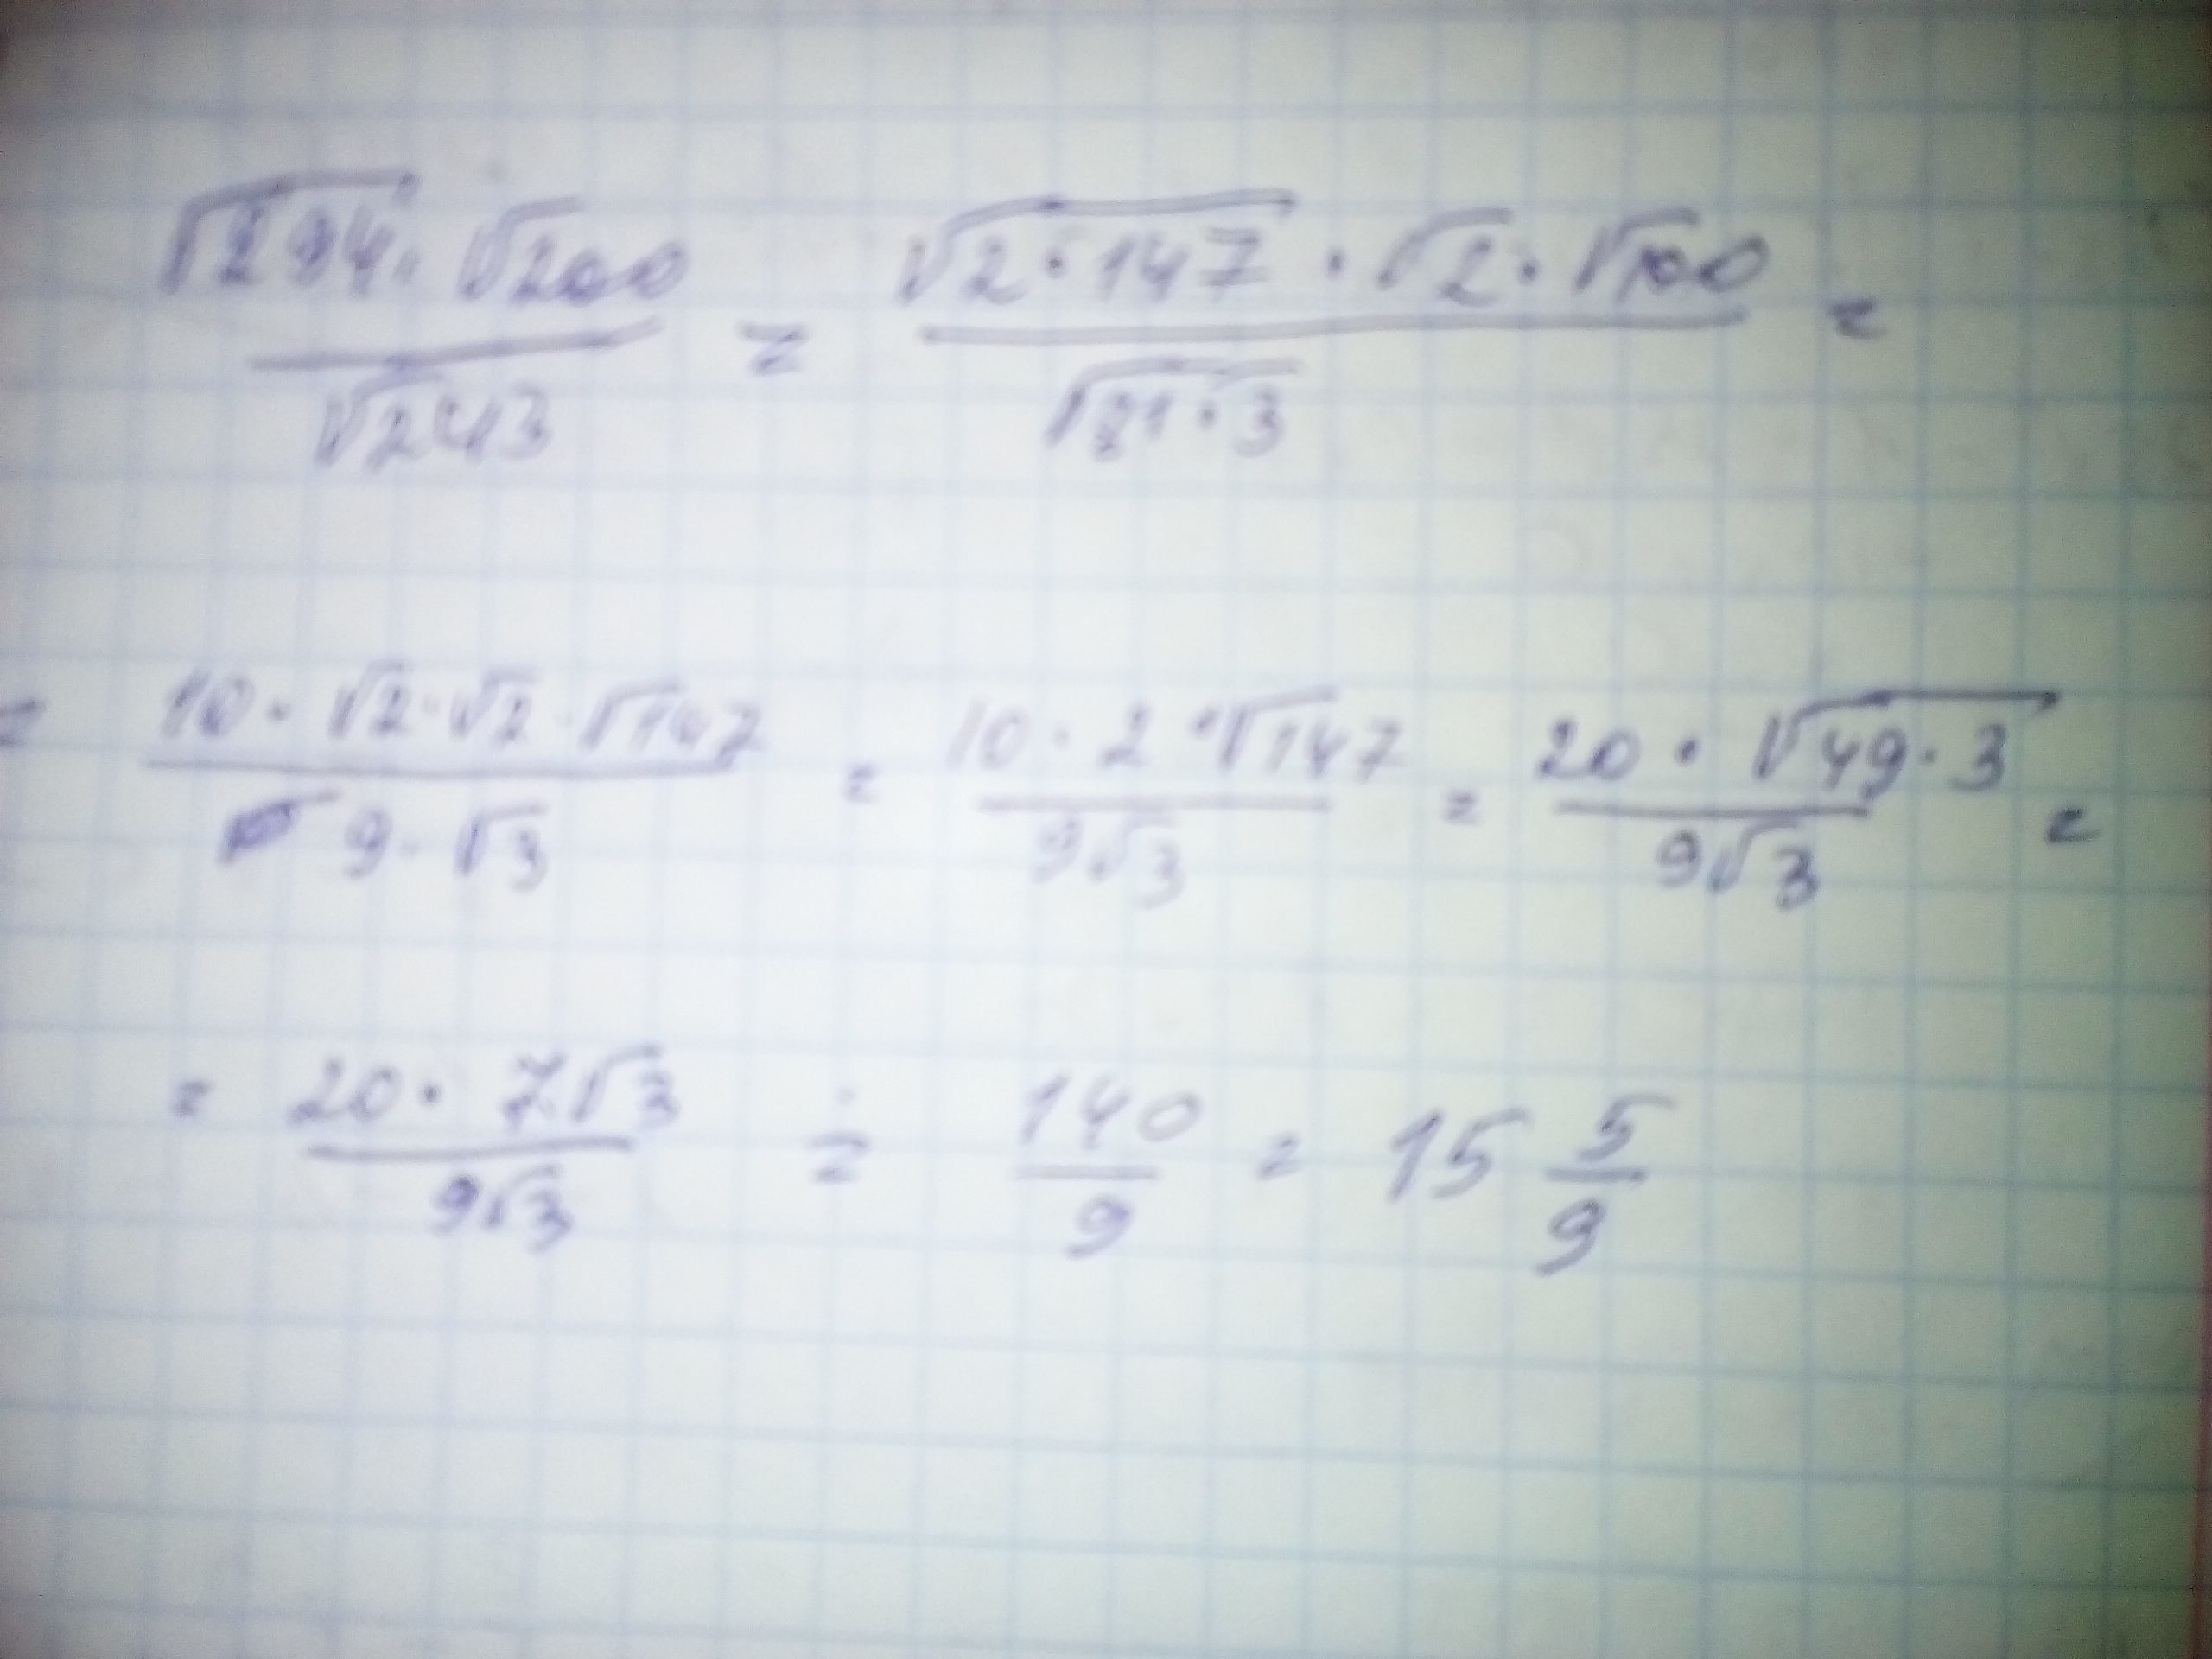 √294 · √200 / √243 = √2·147 · √2 · √100 / √81·3 =
= 10 · √2 · √2 · √147 / 9 · √3 = 10 · 2 · √147 / 9√3 = 20 · √49·3 / 9√3 =
= 20 · 7√3 / 9√3 = 140 / 9 = 15 5/9